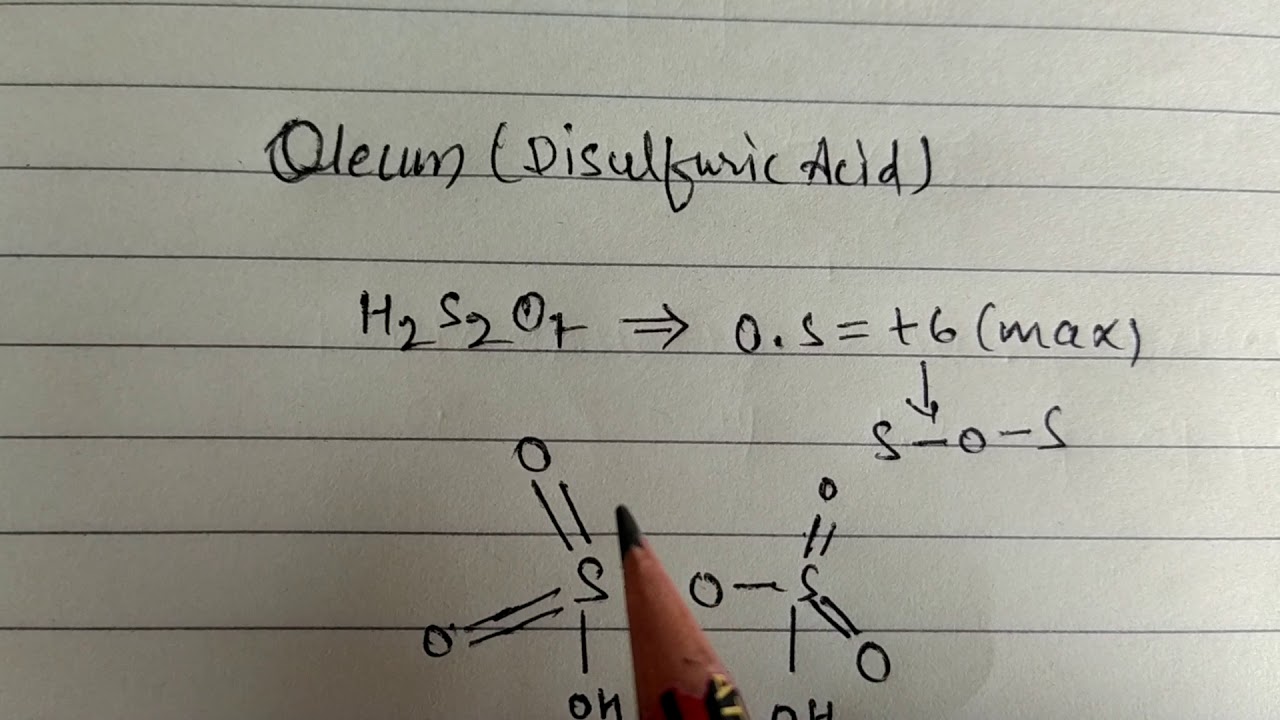 Oleum (Disulfuric Acid)
H2S2O7 ⇒ O.S = +6 (max)
↓
S-O-S
O
O
S
O-S
O
O
OH
OH